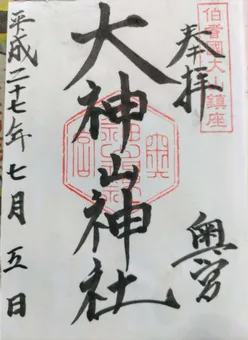 伯耆國大山鎮座
奉拝
奥宮
大神山神社
平成二十七年七月五日